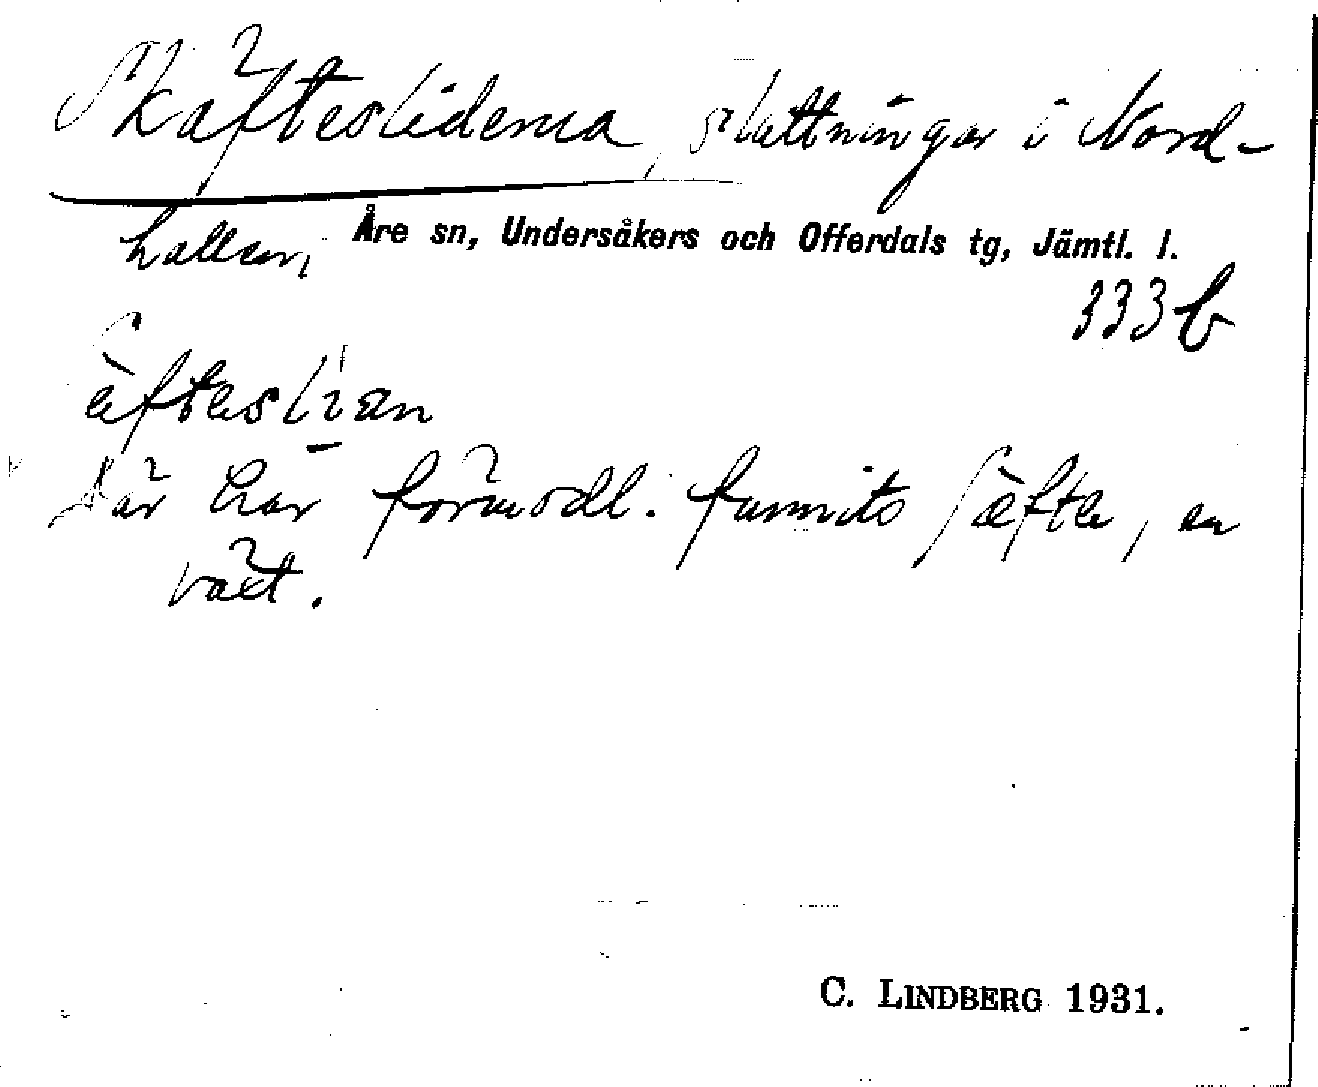 Skäftesliderna, slåttningar i Nord-
hallen, Åre sn, Undersåkers och Offerdals tg, Jämtl. l.
333 b
där har förmodl. funnits ʃæfte, en
växt.
C. LINDBERG 1931.